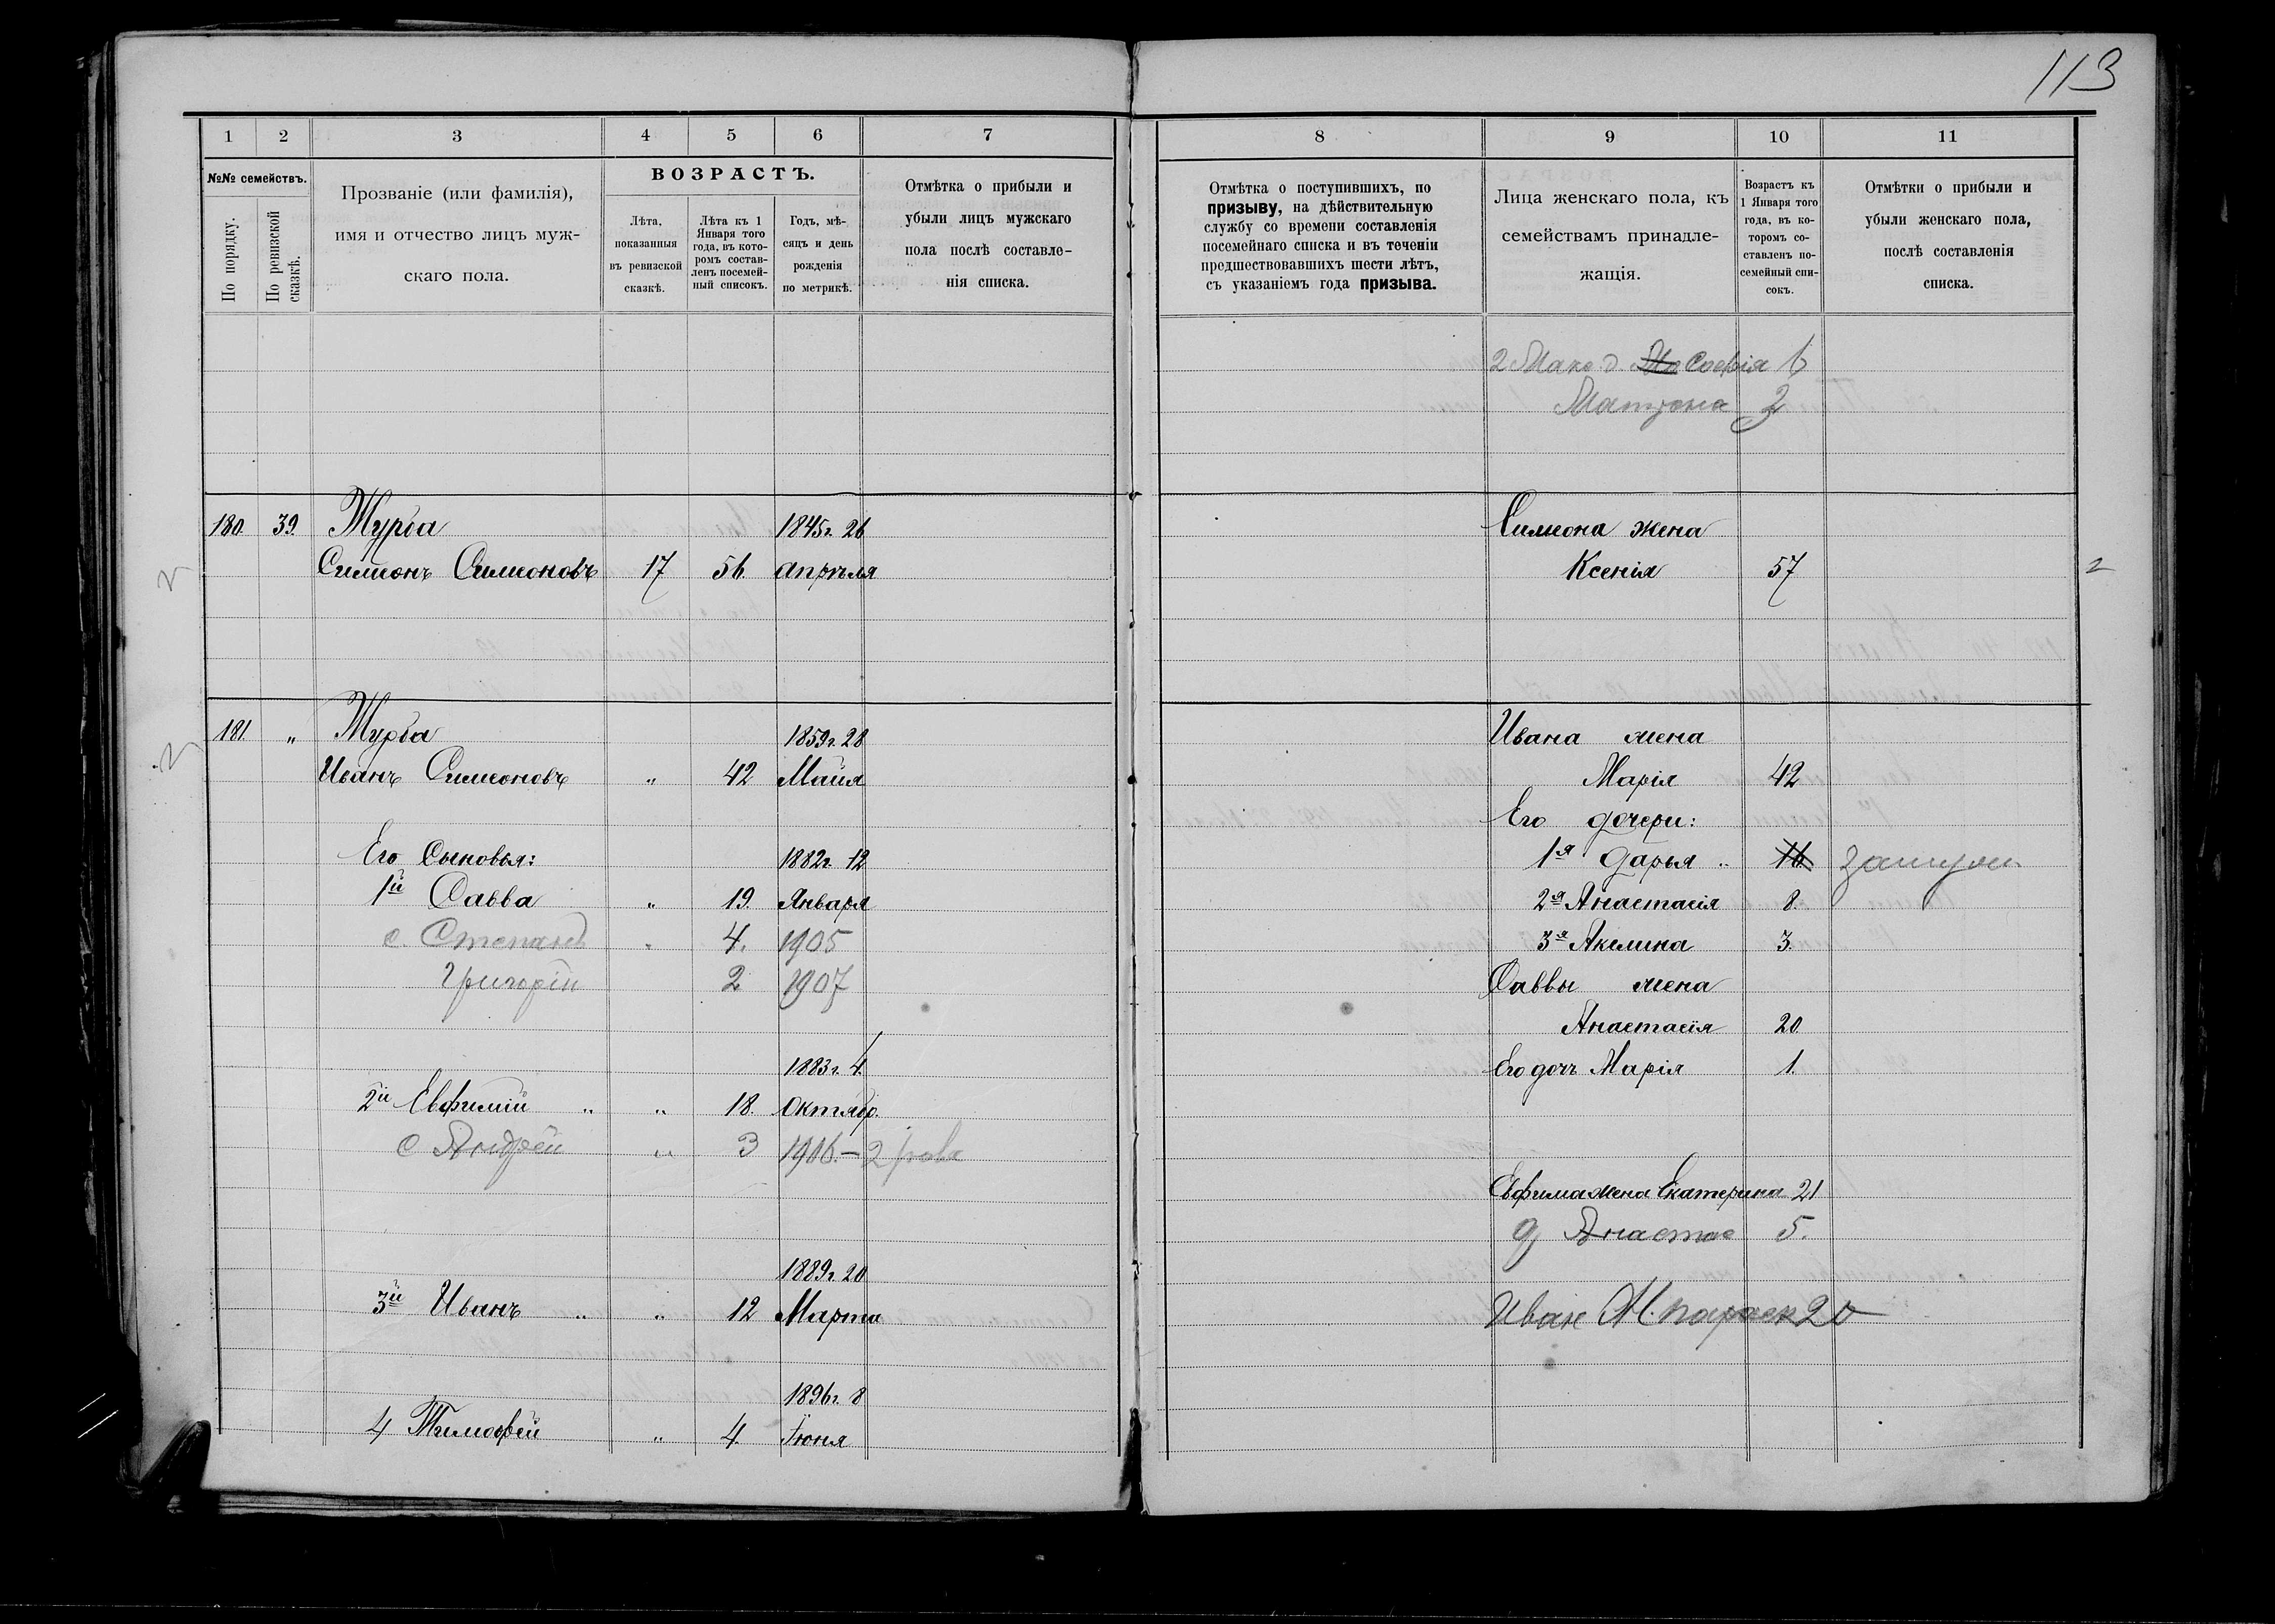 113
1 2 3 4 5 6 7
№№ семействъ.
По порядку.
По ревизской сказкѣ.
Прозваніе (или фамилія),
имя и отчество лицъ муж-
скаго пола.
ВОЗРАСТЪ.
Лѣта,
показанныя
въ ревизской
сказкѣ.
Лѣта къ 1
Января того
года, въ кото-
ромъ состав-
ленъ посемей-
ный списокъ.
Годъ, мѣ-
сяцъ и день
рожденія
по метрикѣ.
Отмѣтка о прибыли и
убыли лицъ мужскаго
пола послѣ составле-
нія списка.
180. 39. Журба 1845г. 26
Симеонъ Симеоновъ 17 56. апрѣля
181. " Журба 1859г. 28
Иванъ Симеоновъ " 42 Маія
Его Сыновья: 1882г. 12
1й Савва " 19. Января
с. Степанъ " 4. 1905
Григорій 2 1907
1883г. 4.
2й Евфимій " " 18. Октябр.
с Андрей " 3 1906.— 2
1889г. 20
3й Иванъ " " 12 Марта
1896г. 8
4 Тимофей " 4. Іюня
8 9 10 11
Отмѣтка о поступившихъ, по
призыву, на дѣйствительную
службу со времени составленія
посемейнаго списка и въ теченіи
предшествовавшихъ шести лѣтъ,
съ указаніемъ года призыва.
Лица женскаго пола, къ
семействамъ принадле-
жащія.
Возрастъ къ
1 Января того
года, въ ко-
торомъ со-
ставленъ по-
семейный спи-
сокъ.
Отмѣтки о прибыли и
убыли женскаго пола,
послѣ составленія
списка.
д. Софія 6
Матрона
Симеона жена
Ксенія 57
Ивана жена
Марія 42
Его дочери:
1я Дарья " 16. замужем
2я Анастасія 8.
3я Акелина 3.
Саввы жена
Анастасія 20
Его доч Марія 1.
Евфима жена Екатерина 21
д Анастас 5.
Иван Ж. параск 20